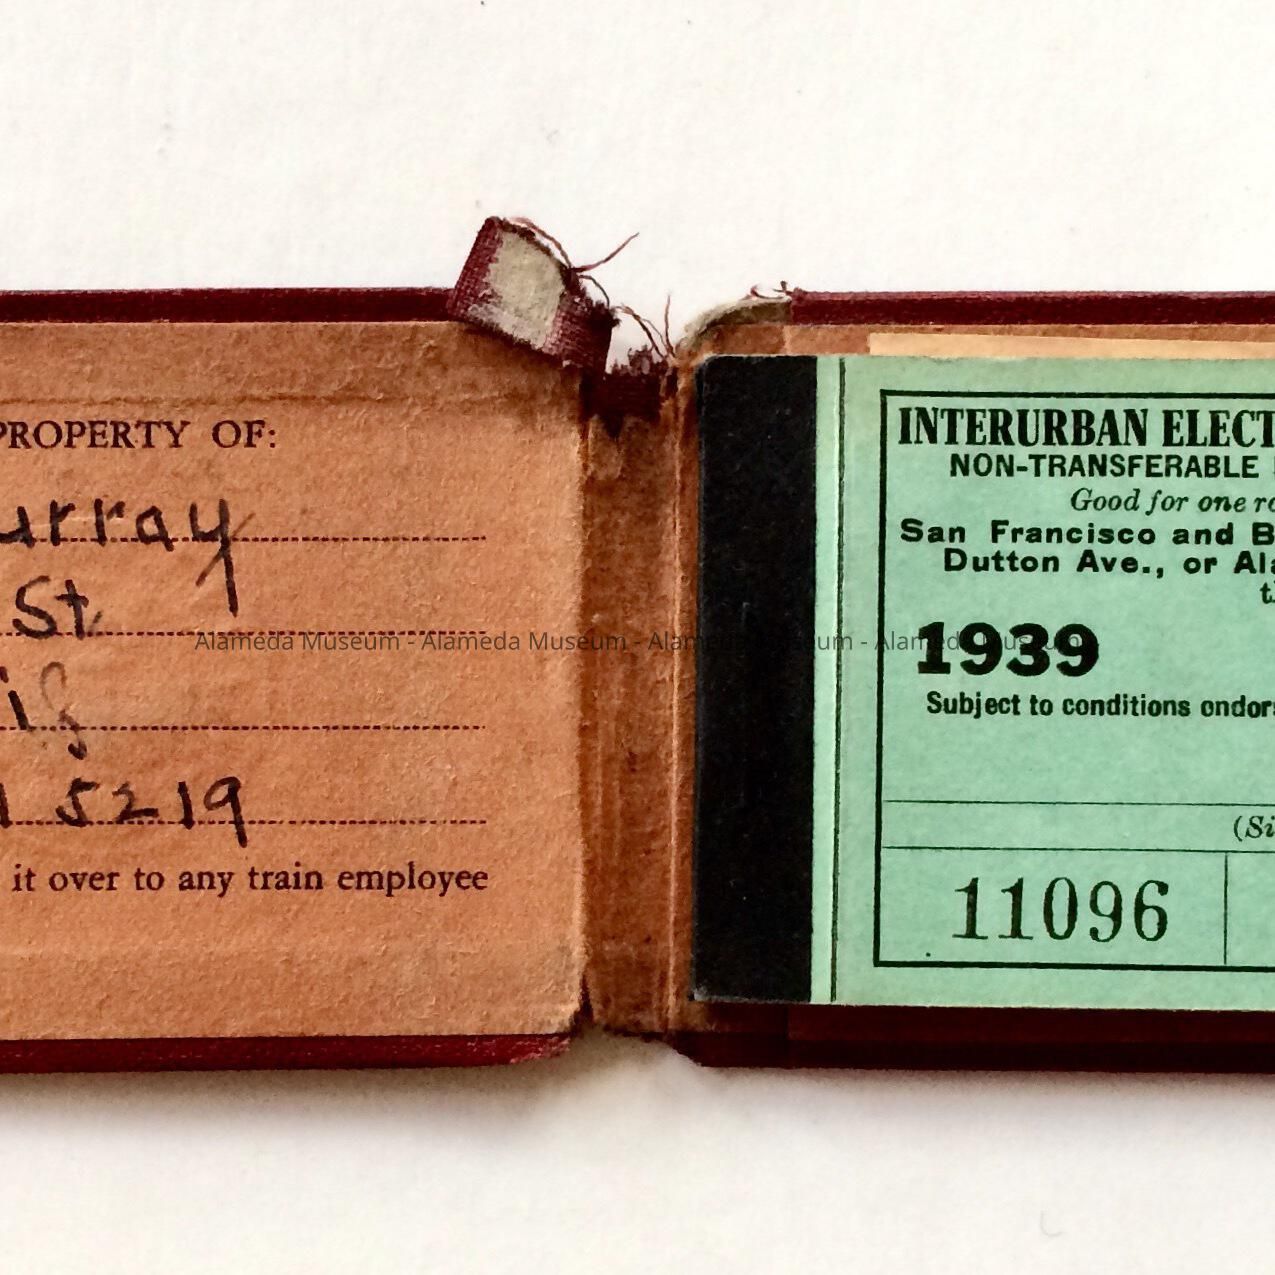 PROPERTY OF:
urray
St.
if
1 5219
it over to any train employee
INTERURBAN ELECT
NON-TRANSFERABLE
Good for one ro
San Francisco and B
Dutton Ave., or Ala
t
1939
Subject to conditions endors
(Si
11096
Alameda Museum - Alameda Museum - Alameda Museum - Alameda Museum